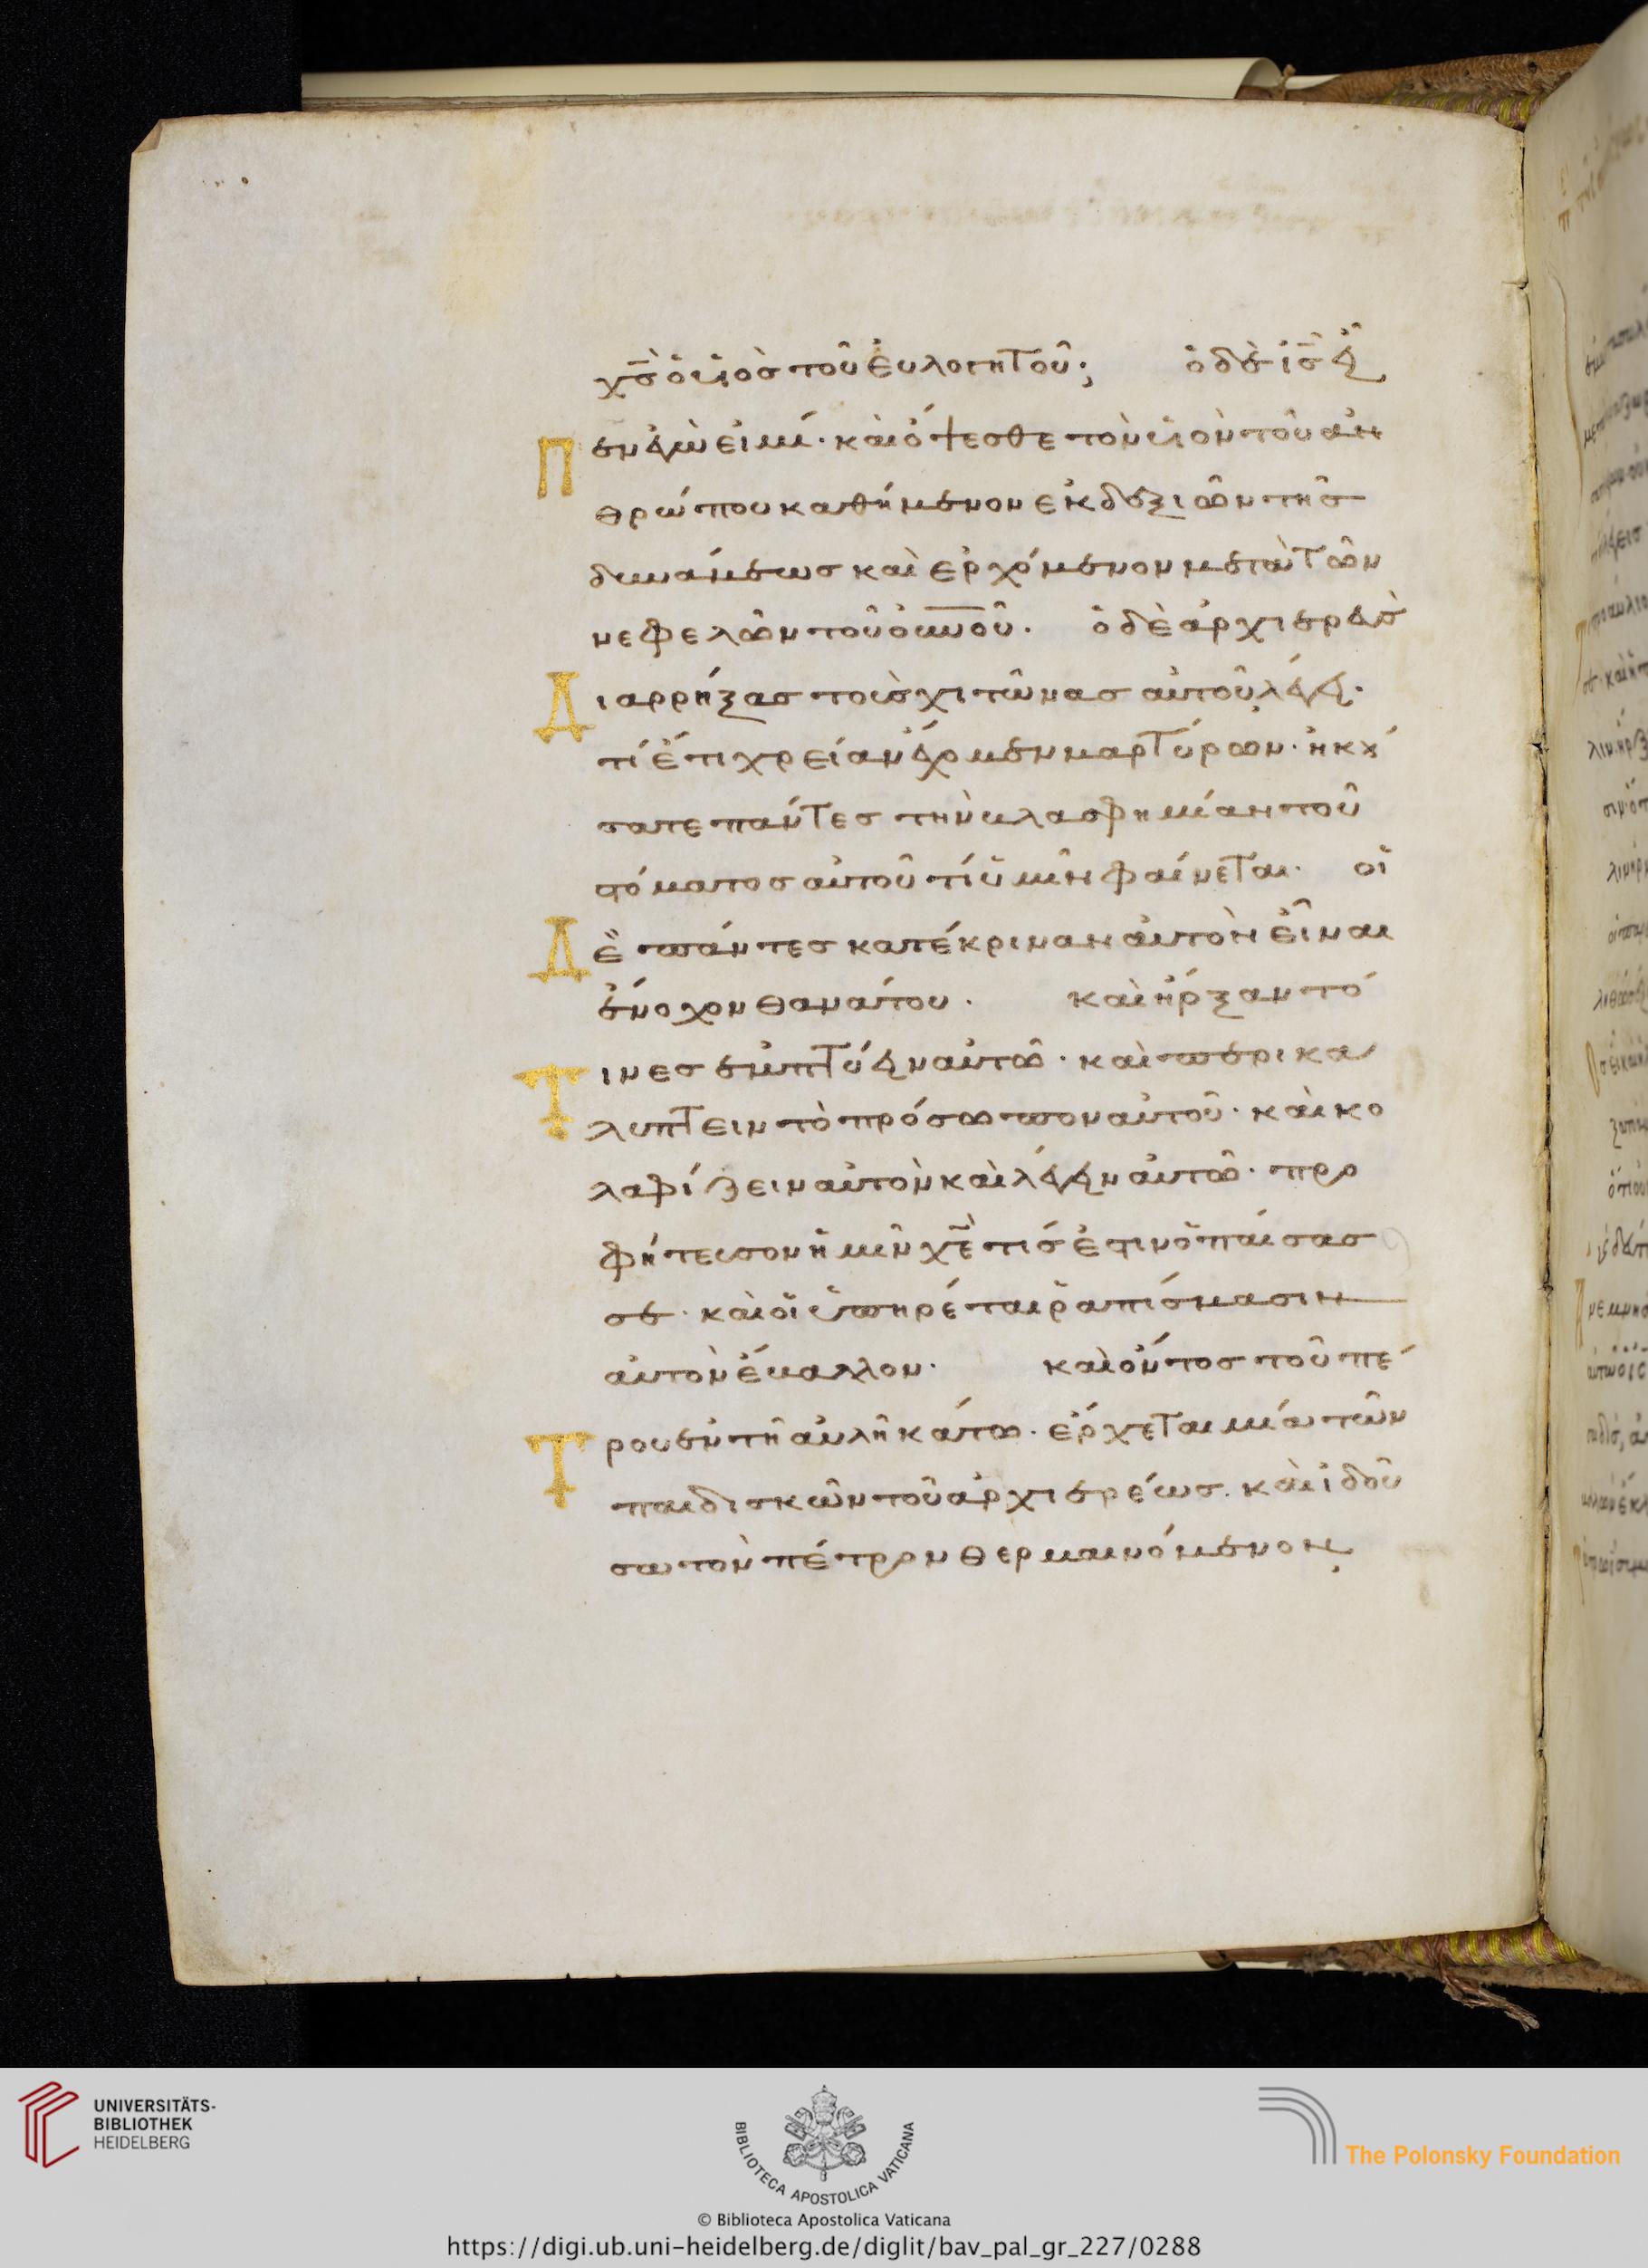 χ̅ς̅ ὁ υἱὸς τοῦ εὐλογητοῦ; ὁ δὲ ι̅ς̅ εἶ
Πεν ἐγὼ εἰμί· καὶ ὄψεσθε τὸν υἱὸν τοῦ ἀν
θρώπου καθήμενον ἐκ δεξιῶν τῆς
δυνάμεως καὶ ἐρχόμενον μετὰ τῶν
νεφελῶν τοῦ ο̅υ̅ν̅ο̅ῦ̅. ὁ δὲ ἀρχιερεὺς
Διαρρήξας τοὺς χιτῶνας αὐτοῦ λέγει·
τί ἔτι χρείαν ἔχομεν μαρτύρων· ἠκού
σατε πάντες τὴν βλασφημίαν τοῦ
στόματος αὐτοῦ τί ὑμῖν φαίνεται· οἱ
Δὲ πάντες κατέκριναν αὐτὸν εἶναι
ἔνοχον θανάτου. καὶ ἤρξαντό
Τινες ἐμπτύειν αὐτῶ· καὶ περικα
λύπτειν τὸ πρόσωπον αὐτοῦ· καὶ κο
λαφίζειν αὐτὸν καὶ λέγειν αὐτῶ· προ
φήτευσον ἡμῖν χ̅ε̅ τίς ἐστιν ὁ παίσας
σε· καὶ οἱ ὑπηρέται ῥαπίσμασιν
αὐτὸν ἔβαλλον· καὶ ὄντος τοῦ Πέ
Τρου ἐν τῆ αὐλῆ κάτω· ἔρχεται μία τῶν
παιδισκῶν τοῦ ἀρχιερέως. καὶ ἰδοῦ
σα τὸν πέτρον θερμαινόμενον,
UNIVERSITÄTS-
BIBLIOTHEK
HEIDELBERG
BIBLIOTECA APOSTOLICA VATICANA
The Polonsky Foundation
© Biblioteca Apostolica Vaticana
https://digi.ub.uni-heidelberg.de/diglit/bav_pal_gr_227/0288